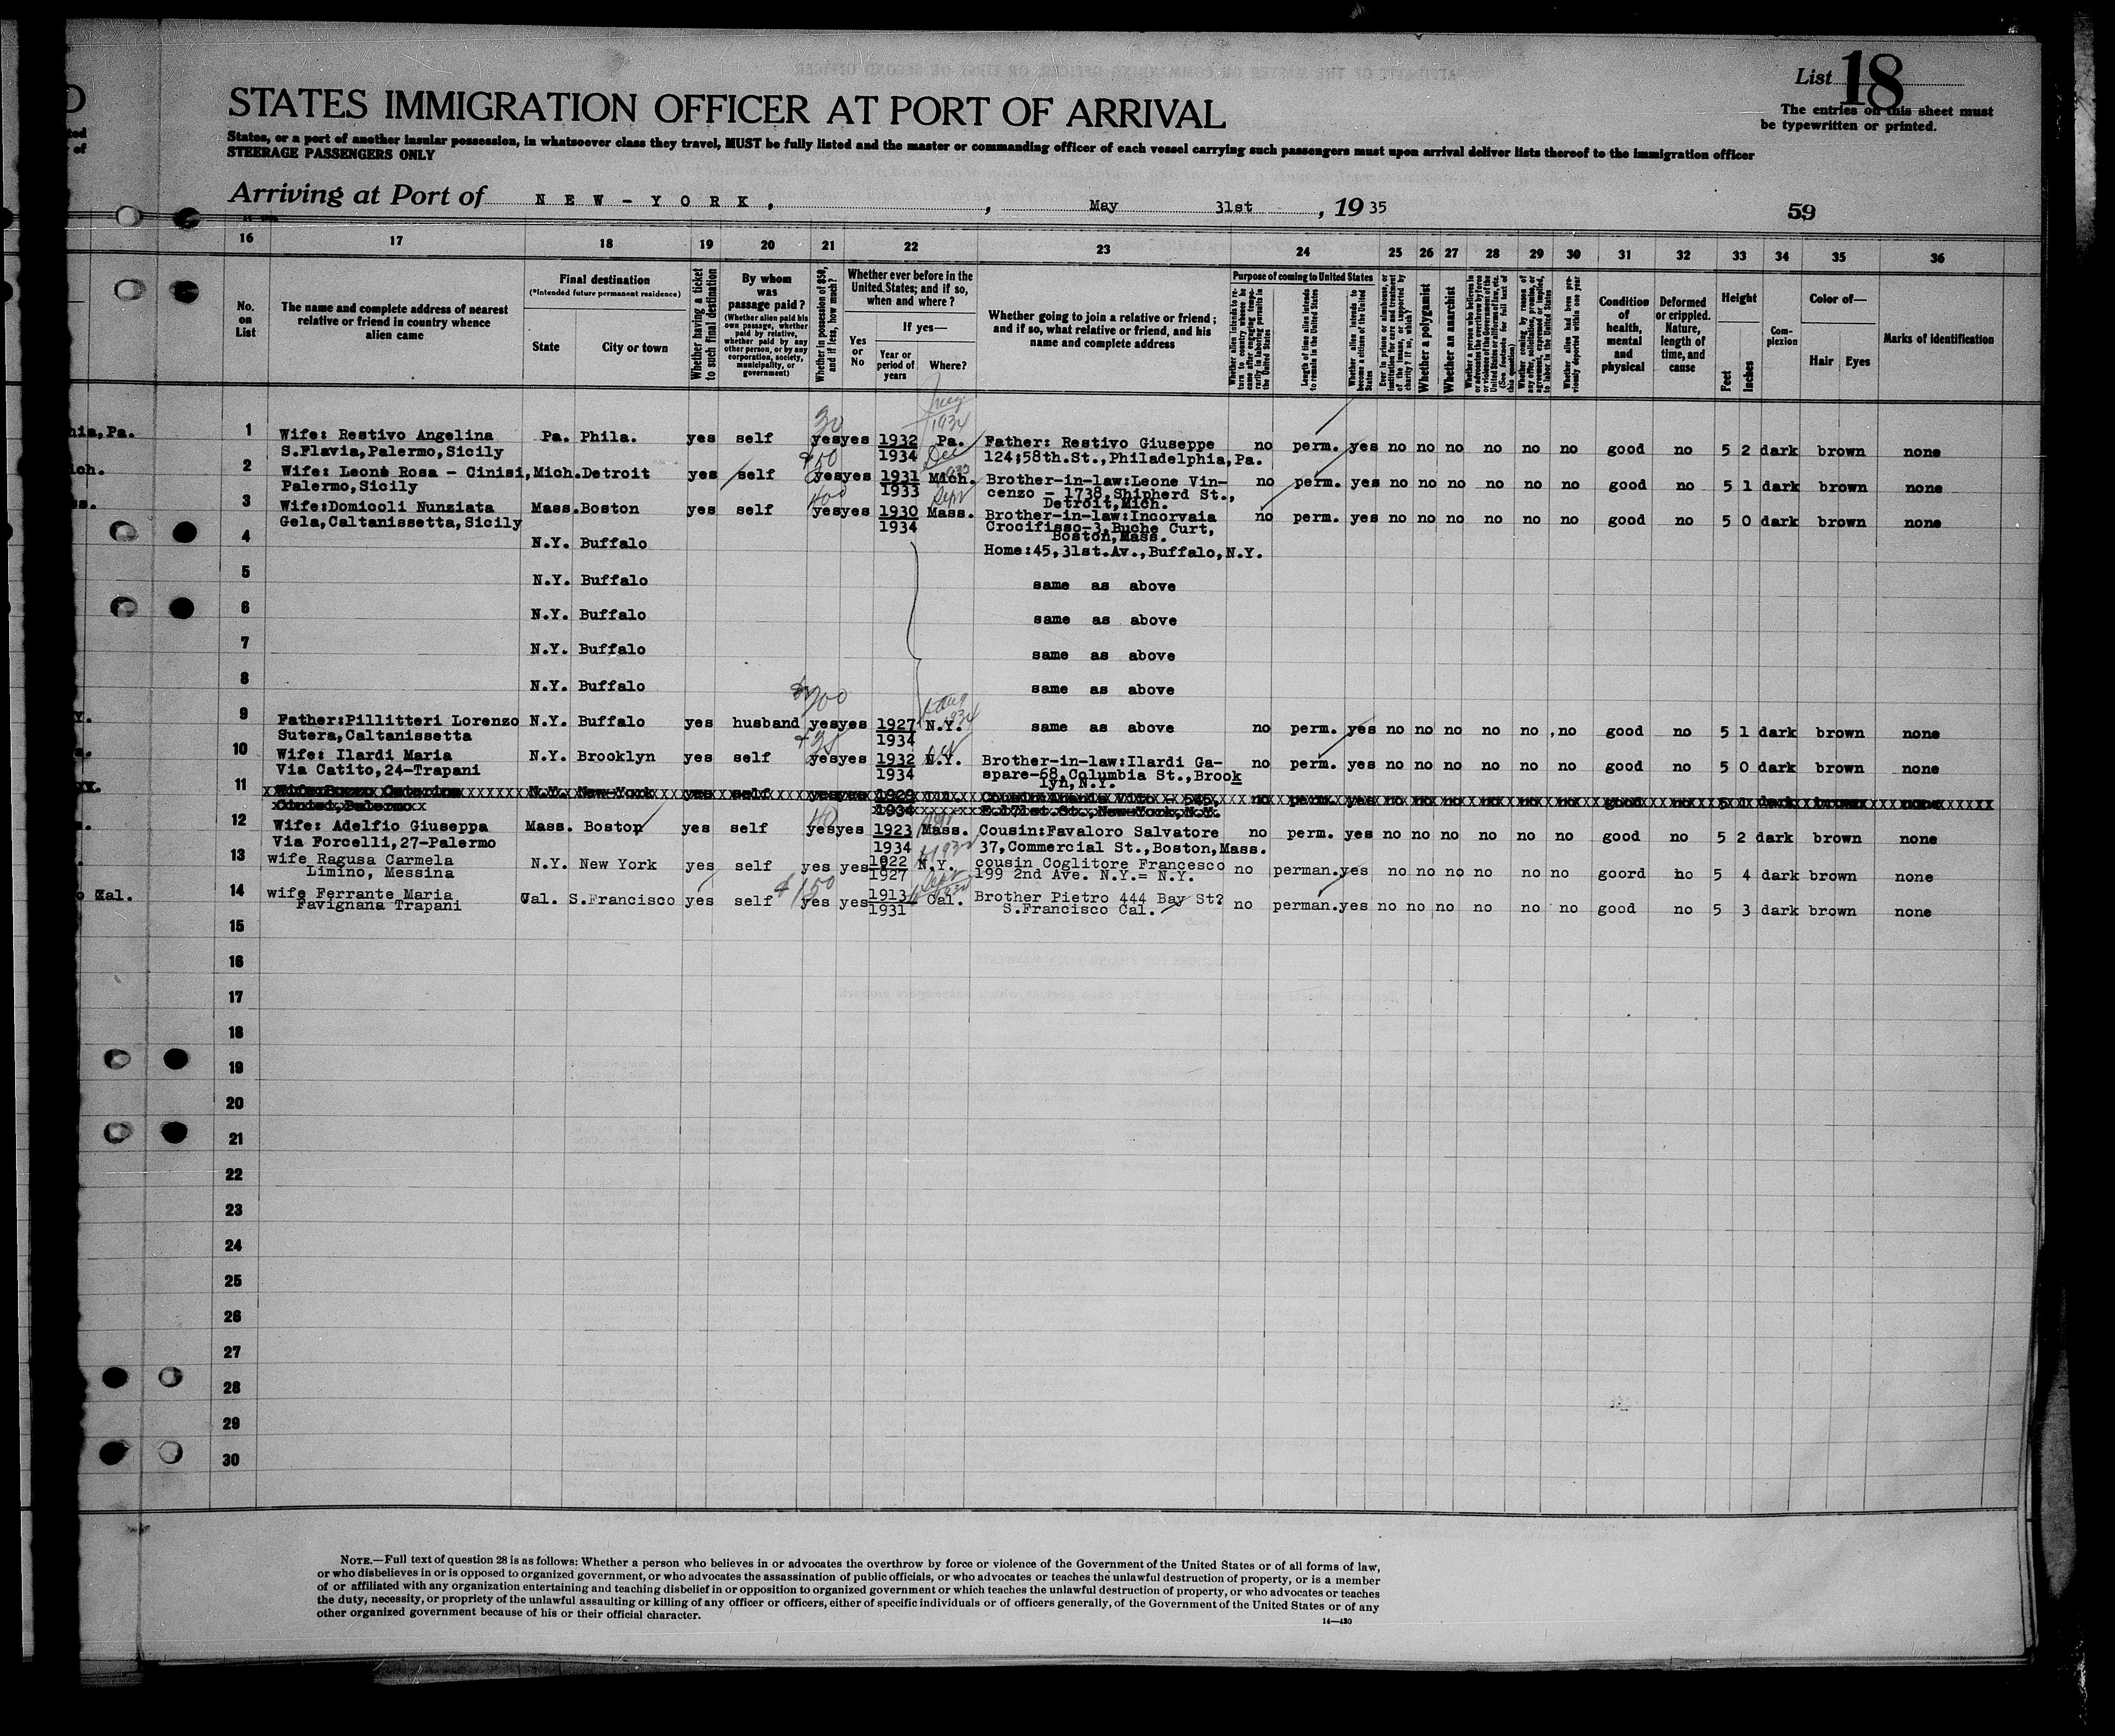 List 18
STATES IMMIGRATION OFFICER AT PORT OF ARRIVAL
The entries on this sheet must
be typewritten or printed.
States, or a port of another insular possession, in whatsoever class they travel, MUST be fully listed and the master or commanding officer of each vessel carrying such passengers must upon arrival deliver lists thereof to the immigration officer
STEERAGE PASSENGERS ONLY
Arriving at Port of NEW-YORK, , May 31st , 19 35
59
16 17 18 19 20 21 22 23 24 25 26 27 28 29 30 31 32 33 34 35 36
No. on List
The name and complete address of nearest relative or friend in country whence alien came
Final destination
(*Intended future permanent residence)
State
City or town
Whether having a ticket to such final destination
By whom was passage paid?
(Whether alien paid his own passage, whether paid by relative, whether paid by any other person, or by any corporation, society, municipality, or government)
Whether in possession of $50, and if less, how much?
Whether ever before in the United States; and if so, when and where?
Yes or No
If yes—
Year or period of years
Where?
Whether going to join a relative or friend; and if so, what relative or friend, and his name and complete address
Purpose of coming to United States
Length of time alien intends to remain in the United States
Whether alien intends to become a citizen of the United States
Whether a polygamist
Whether an anarchist
Condition of health, mental and physical
Deformed or crippled. Nature, length of time, and cause
Height
Feet
Inches
Complexion
Color of—
Hair
Eyes
Marks of identification
hia,Pa. 1 Wife: Restivo Angelina Pa. Phila. yes self 30 yes yes 1932 Pa. 1934 Father: Restivo Giuseppe no perm. yes no no no no no no good no 5 2 dark brown none
S.Flavia,Palermo,Sicily 1934 124;58th.St.,Philadelphia,Pa.
ich. 2 Wife: Leone Rosa - Cinisi, Mich. Detroit yes self yes yes 1931 Mich. Brother-in-law:Leone Vin- no perm. yes no no no no no no good no 5 1 dark brown none
Palermo,Sicily 1933 cenzo - 1738,Shipherd St.,
Detroit,Mich.
ss. 3 Wife:Domicoli Nunziata Mass. Boston yes self yes yes 1930 Mass. Brother-in-law:Incorvaia no perm. yes no no no no no no good no 5 0 dark brown none
Gela,Caltanissetta,Sicily 1934 Crocifisso-3,Buohe Curt,
Boston,Mass.
4 N.Y. Buffalo Home:45,31st.Av.,Buffalo,N.Y.
5 N.Y. Buffalo same as above
6 N.Y. Buffalo same as above
7 N.Y. Buffalo same as above
8 N.Y. Buffalo same as above
Y. 9 Father:Pillitteri Lorenzo N.Y. Buffalo yes husband yes yes 1927 N.Y. same as above no perm. yes no no no no no no good no 5 1 dark brown none
Sutera,Caltanissetta 1934
10 Wife: Ilardi Maria N.Y. Brooklyn yes self yes yes 1932 N.Y. Brother-in-law:Ilardi Ga- no perm. yes no no no no no no good no 5 0 dark brown none
Via Catito,24-Trapani 1934 spare-68,Columbia St.,Brook
lyn,N.Y.
11 N.Y. New-York yes self yes yes 1929 no perm. yes no no no no no no good no 5 dark brown none
Cinisi,Palermo 1934 St.,New-York,N.Y.
12 Wife: Adelfio Giuseppa Mass. Boston yes self 40 yes yes 1923 Mass. Cousin:Favaloro Salvatore no perm. yes no no no no no no good no 5 2 dark brown none
Via Forcelli,27-Palermo 1934 37,Commercial St.,Boston,Mass.
13 wife Ragusa Carmela N.Y. New York yes self yes yes 1922 N.Y. cousin Coglitore Francesco no perman. yes no no no no no no goord no 5 4 dark brown none
Limino, Messina 1927 199 2nd Ave. N.Y.= N.Y.
o Cal. 14 wife Ferrante Maria Cal. S.Francisco yes self $ 150 yes yes 1913 Cal. Brother Pietro 444 Bay St? no perman. yes no no no no no no good no 5 3 dark brown none
Favignana Trapani 1931 S.Francisco Cal.
15
16
17
18
19
20
21
22
23
24
25
26
27
28
29
30
NOTE.—Full text of question 28 is as follows: Whether a person who believes in or advocates the overthrow by force or violence of the Government of the United States or of all forms of law,
or who disbelieves in or is opposed to organized government, or who advocates the assassination of public officials, or who advocates or teaches the unlawful destruction of property, or is a member
of or affiliated with any organization entertaining and teaching disbelief in or opposition to organized government or which teaches the unlawful destruction of property, or who advocates or teaches
the duty, necessity, or propriety of the unlawful assaulting or killing of any officer or officers, either of specific individuals or of officers generally, of the Government of the United States or of any
other organized government because of his or their official character.
14—430